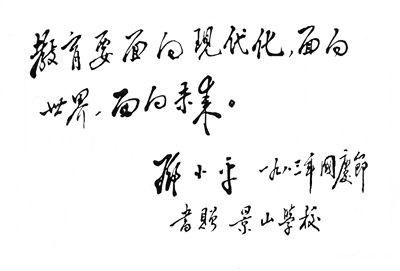 教育要面向现代化,面向
世界,面向未来。
邓小平 一九八三年国慶節
書贈 景山學校